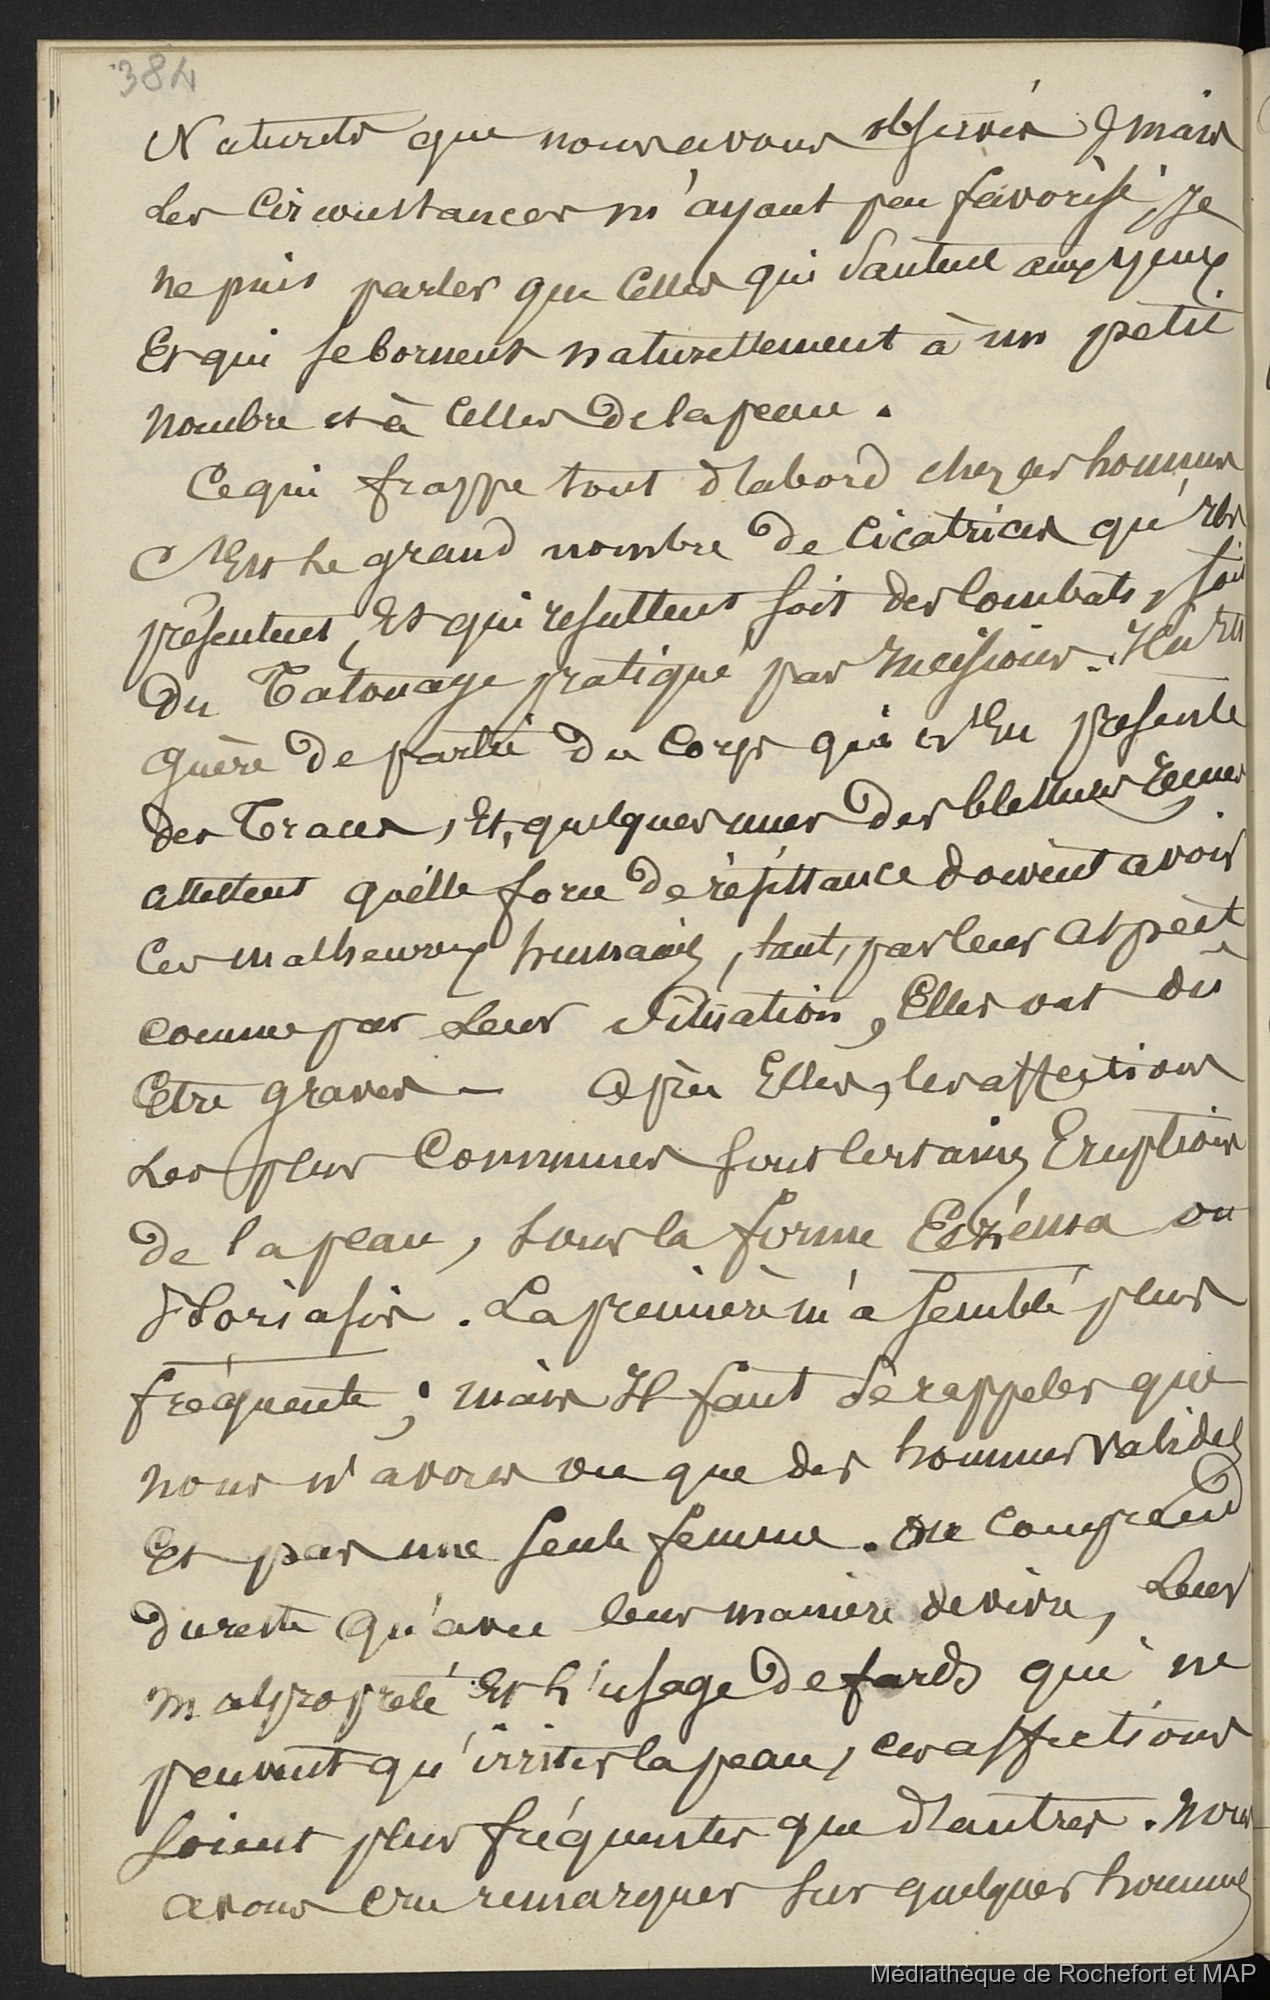 384
Naturels que nous avons observés ; mais
Les Circonstances m'ayant peu favorisé, je
ne puis parler que Celles qui Sautent aux yeux
Et qui se bornent naturellement à un petit
nombre et à Celles de la peau.
Ce qui frappe tout d'abord chez ces hommes
C'Est Le grand nombre de Cicatrices qu'ils
présentent, Et qui resultent soit des Combats, soit
du Tatouage pratiqué par Incisions. Il n'est
guère de partie du Corps qui n'En présente
des Traces, Et, quelques unes des blessures
attestent quelle force de résistance doivent avoir
Ces malheureux humains, tant, par leur aspect
comme par Leur Situation, Elles ont dû
Etre graves — Après Elles, les affections
Les plus Communes sont certaines Eruptions
de la peau, sous la forme Eczéma ou
Psoriasis. La première m'a semblé plus
fréquente ; mais Il faut se rappeler que
nous n'avons vu que des hommes valides
Et pas une seule femme. On Comprend
du reste qu'avec leur manière de vivre, Leur
malpropreté Et L'usage de fards qui ne
peuvent qu'irriter la peau, ces affections
Soient plus fréquentes que d'autres. Nous
avons cru remarquer sur quelques hommes
Médiathèque de Rochefort et MAP